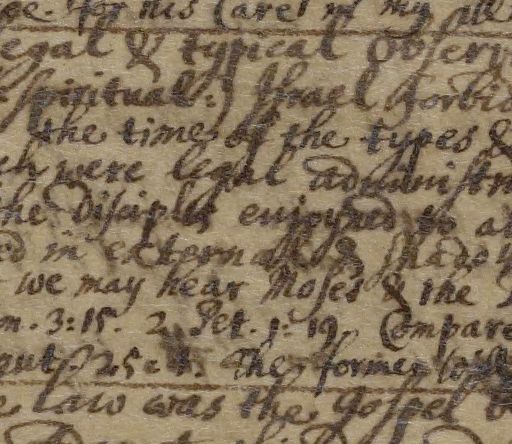 for his Care in my
egal & typical observ
spiritual:) Israel forbid
the times of the types &
ch were legal administr
the disciples enjoyned to a
ed in external & shado
we may hear Moses & the
3:15. 2 Pet. 1:19. Compare
25: The former
e law was the gospel